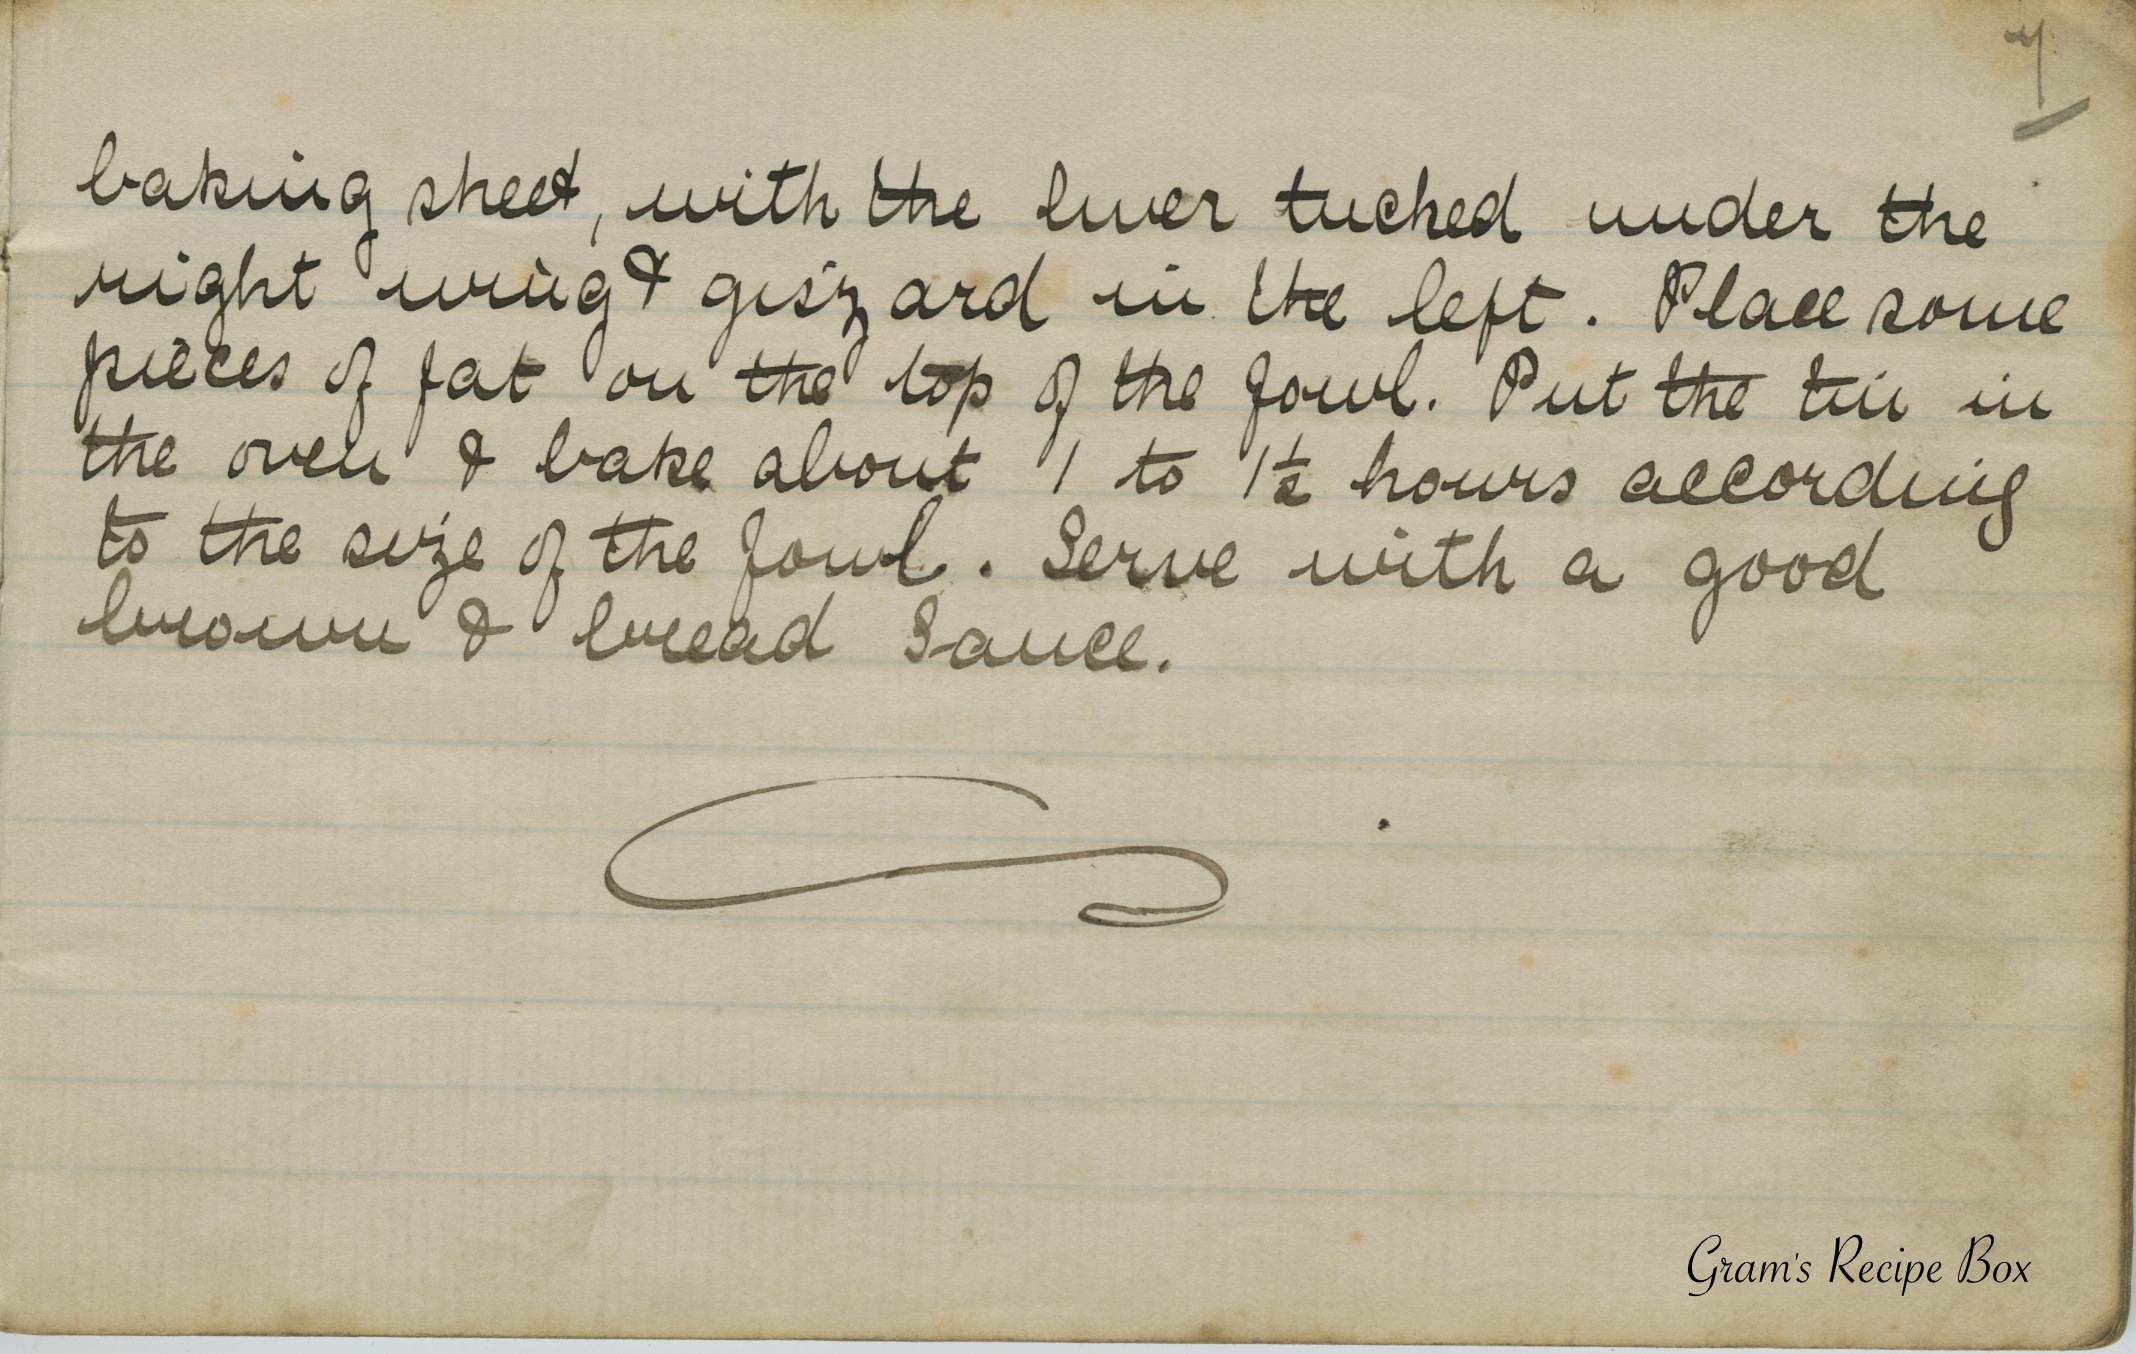 7
baking sheet, with the liver tucked under the
right wing & giszard in the left. Place some
pieces of fat on the top of the fowl. Put the tin in
the oven & bake about 1 to 1½ hours according
to the size of the fowl. Serve with a good
brown & bread Sauce.
Gram's Recipe Box